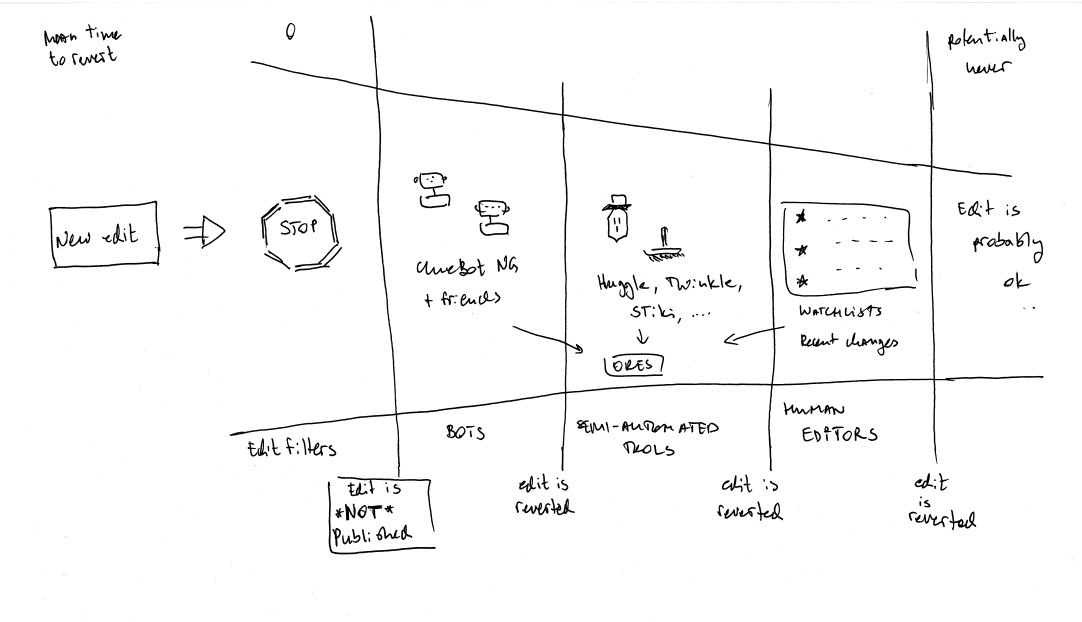 Mean time
to revert
0
potentially
never
New edit
STOP
ClueBot NG
+ friends
Huggle, Twinkle,
STiki, ....
ORES
WATCHLISTS
Recent changes
Edit is
probably
ok
..
Edit filters
BOTS
SEMI-AUTOMATED
TOOLS
HUMAN
EDITORS
Edit is
*NOT*
Published
edit is
reverted
edit is
reverted
edit
is
reverted